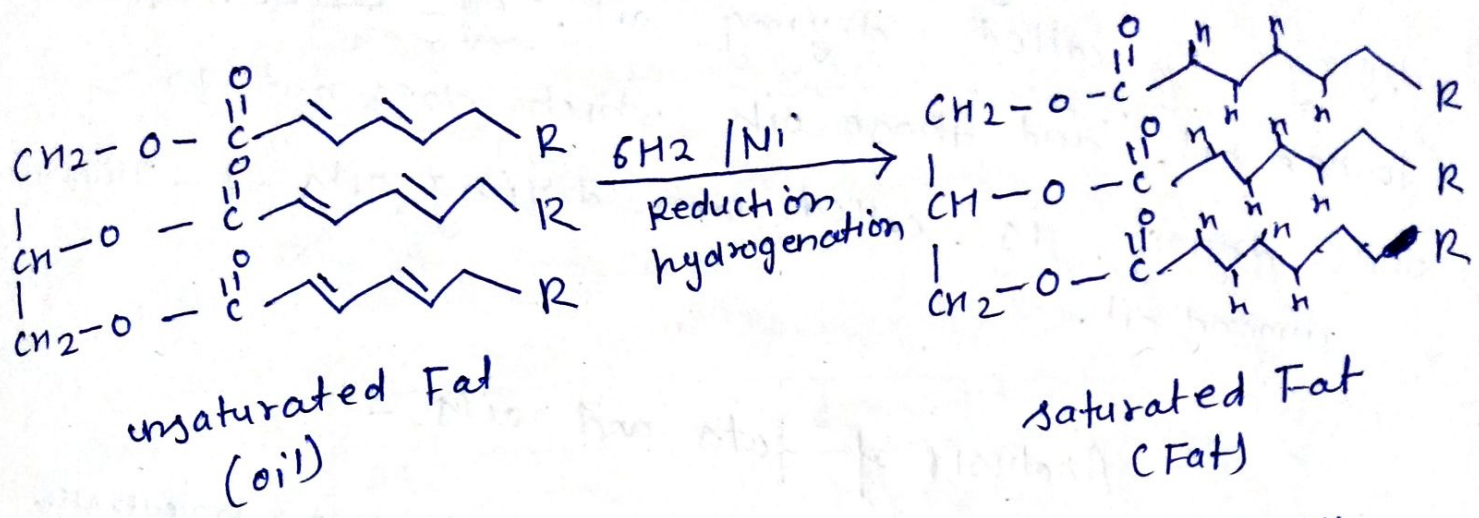 O
CH2-O-C R
O
CH-O-C R
O
CH2-O-C R
unsaturated Fat
(oil)
6H2 /Ni
Reduction
hydrogenation
O H H
CH2-O-C R
H H
O H H
CH-O-C R
H H
O H H
CH2-O-C R
H H
saturated Fat
(Fat)